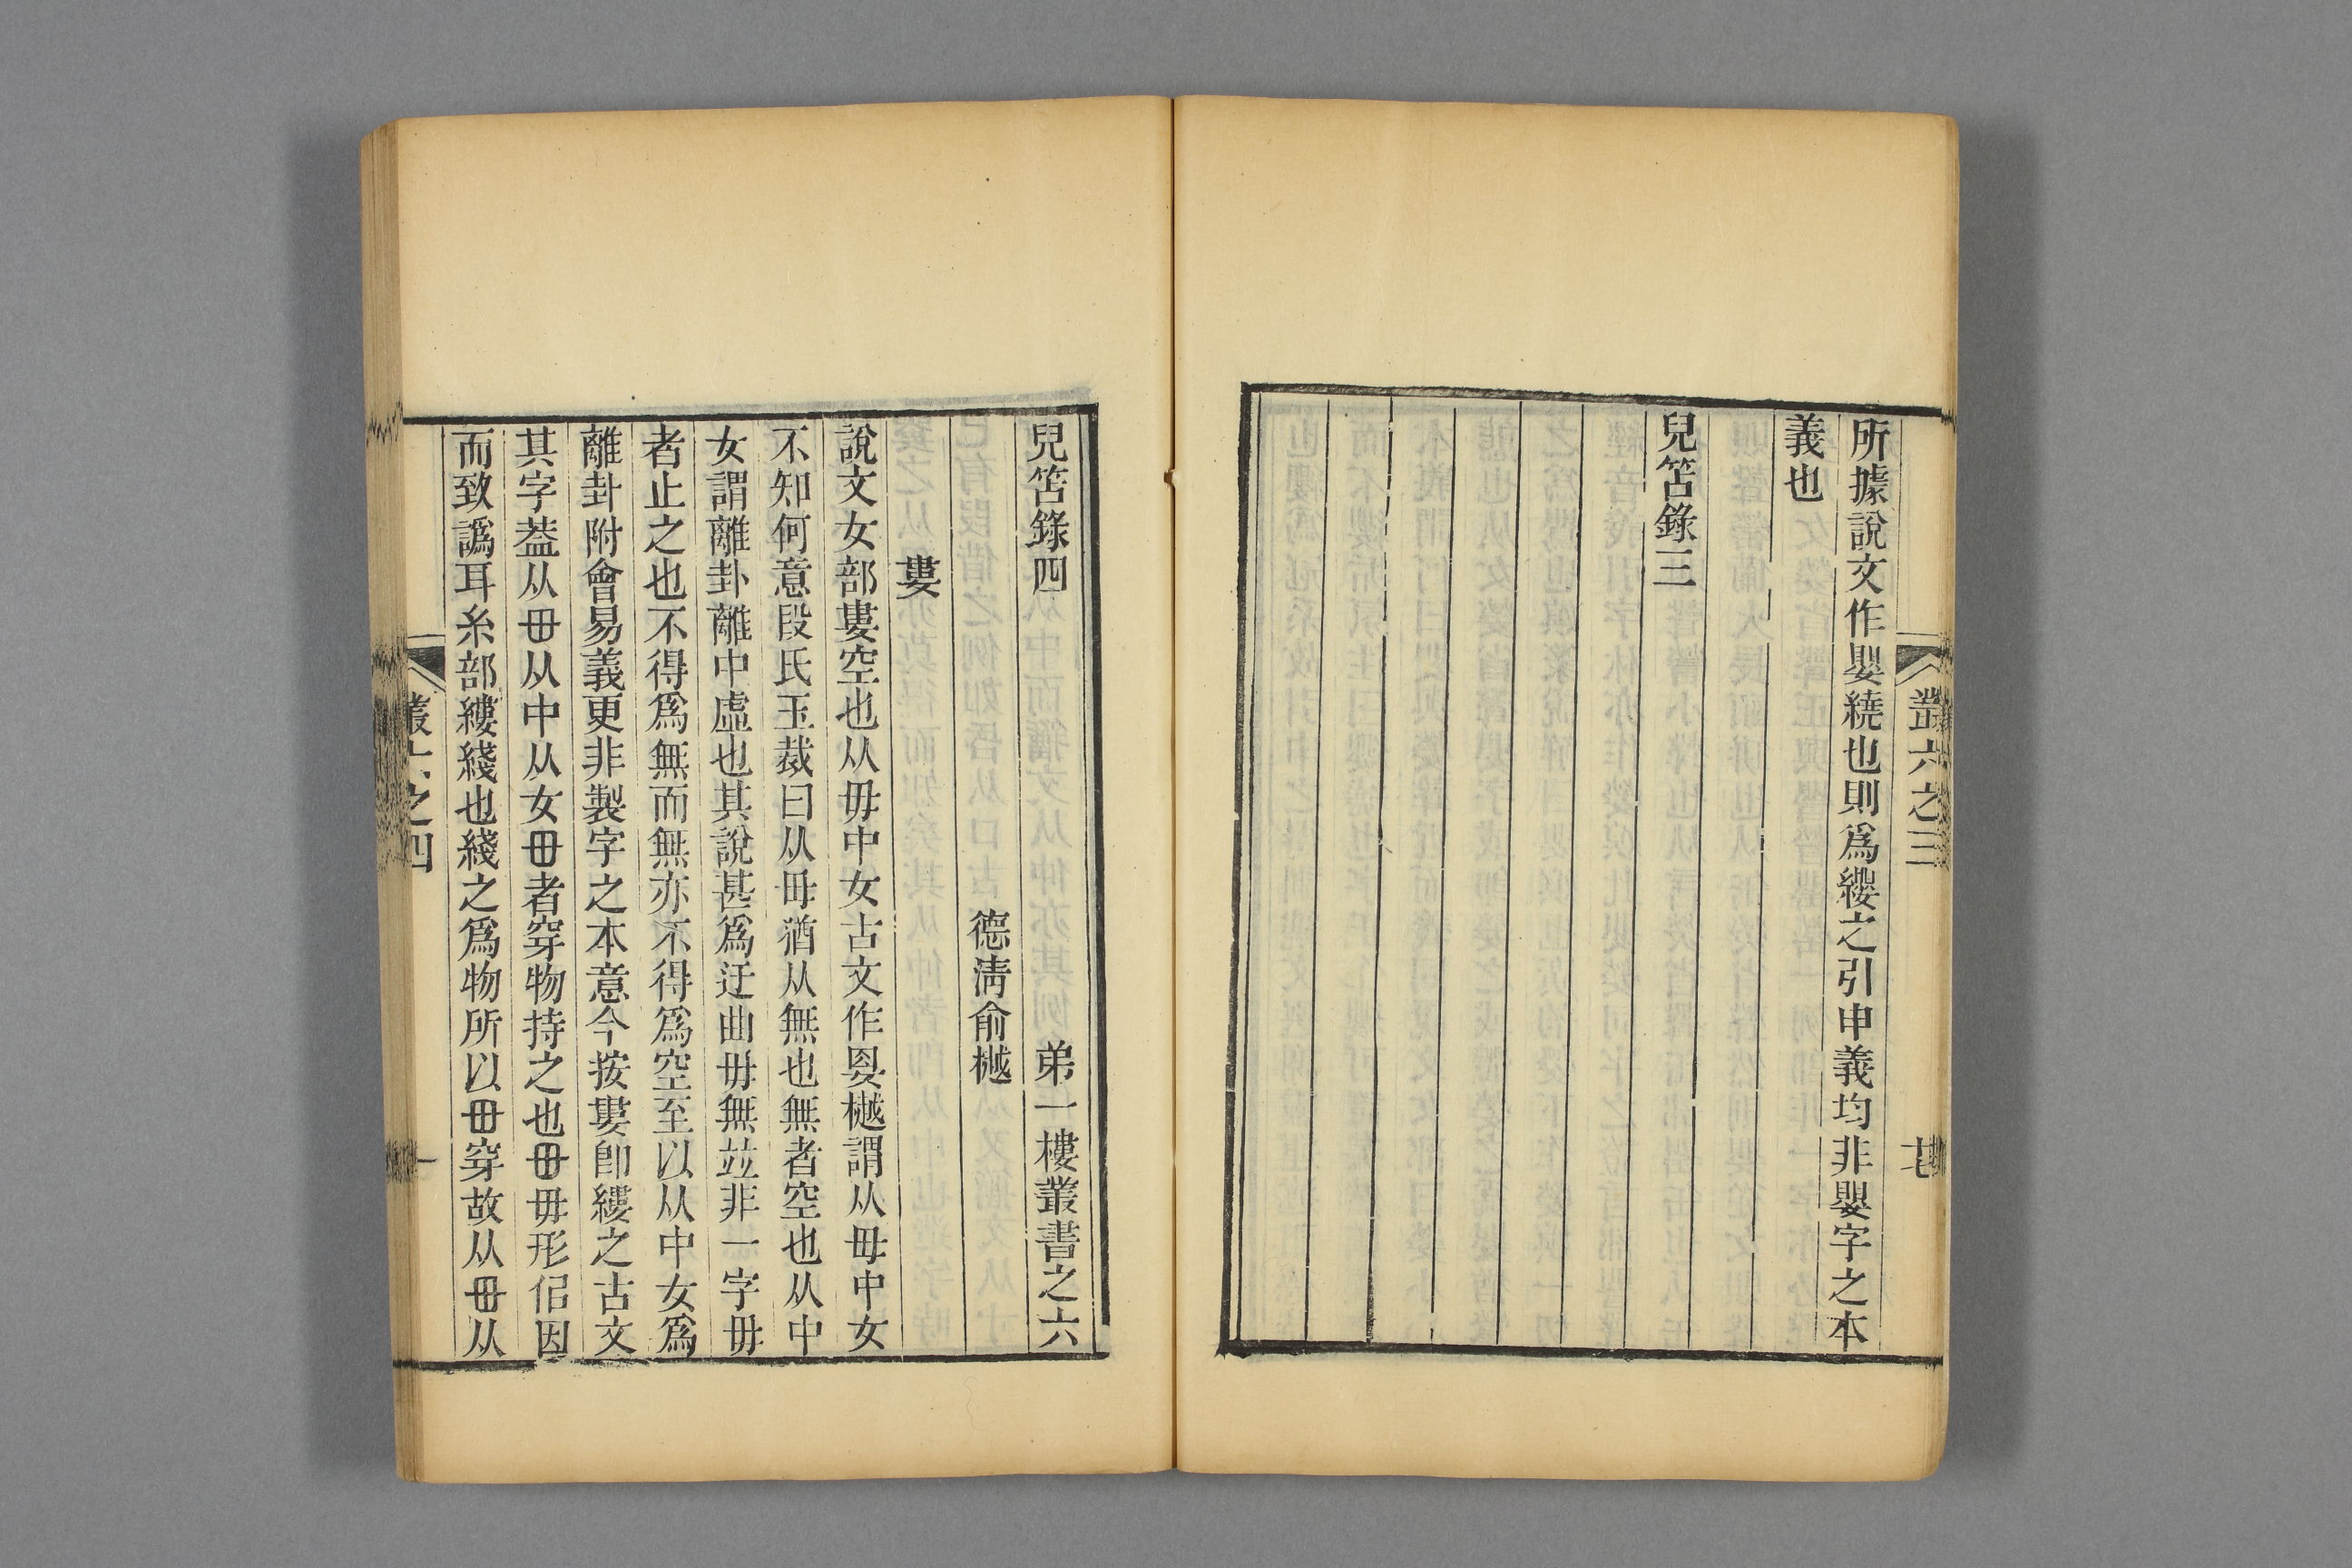 叢六之三
七
所據說文作嬰繞也則爲纓之引申義均非嬰字之本
義也
兒笘錄三
兒笘錄四 弟一樓叢書之六
德淸俞樾
婁
說文女部婁空也从毋中女古文作㛐樾謂从毋中女
不知何意段氏玉裁曰从毋猶从無也無者空也从中
女謂離卦離中虛也其說甚爲迂曲毋無竝非一字毋
者止之也不得爲無而無亦不得爲空至以从中女爲
離卦附會易義更非製字之本意今按婁卽縷之古文
其字葢从毌从中从女毌者穿物持之也毌毋形佀因
而致譌耳糸部縷綫也綫之爲物所以毌穿故从毌从
叢六之四
一